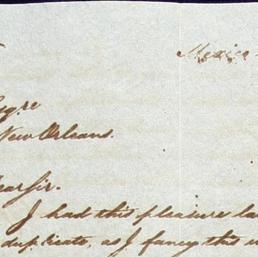 Mexico
Esqre
New Orleans.
Dear Sir.
I had this pleasure la
duplicate, as I fancy this